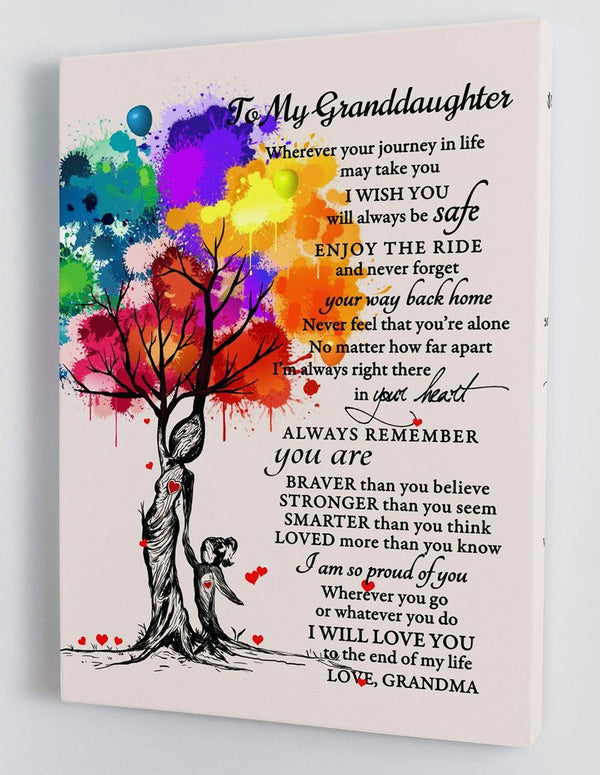 To My Granddaughter
Wherever your journey in life
may take you
I WISH YOU
will always be safe
ENJOY THE RIDE
and never forget
your way back home
Never feel that you're alone
No matter how far apart
I'm always right there
in your heart
ALWAYS REMEMBER
you are
BRAVER than you believe
STRONGER than you seem
SMARTER than you think
LOVED more than you know
I am so proud of you
Wherever you go
or whatever you do
I WILL LOVE YOU
to the end of my life
LOVE, GRANDMA